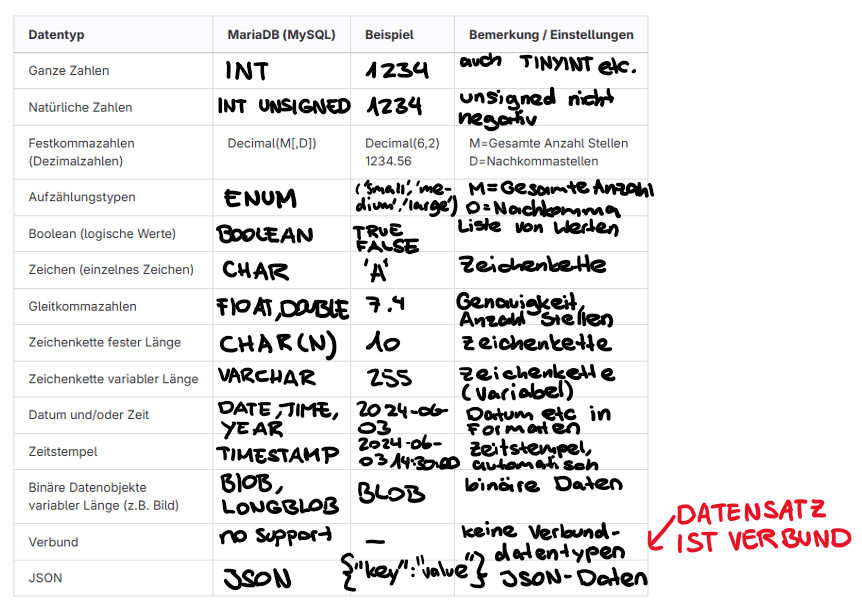 Datentyp MariaDB (MySQL) Beispiel Bemerkung / Einstellungen
Ganze Zahlen INT 1234 auch TINYINT etc.
Natürliche Zahlen INT UNSIGNED 1234 unsigned nicht
negativ
Festkommazahlen Decimal(M[,D]) Decimal(6,2) M=Gesamte Anzahl Stellen
(Dezimalzahlen) 1234.56 D=Nachkommastellen
Aufzählungstypen ENUM ('small','me- M=Gesamte Anzahl
dium','large') D=Nachkomma
Boolean (logische Werte) BOOLEAN TRUE Liste von Werten
FALSE
Zeichen (einzelnes Zeichen) CHAR 'A' Zeichenkette
Gleitkommazahlen FlOAT,DOUBLE 7.4 Genauigkeit,
Anzahl Stellen
Zeichenkette fester Länge CHAR(N) 10 Zeichenkette
Zeichenkette variabler Länge VARCHAR 255 Zeichenkette
(Variabel)
Datum und/oder Zeit DATE,TIME, 2024-06- Datum etc in
YEAR 03 Formaten
Zeitstempel TIMESTAMP 2024-06- Zeitstempel,
03 14:30:00 automatisch
Binäre Datenobjekte BlOB, BLOB binäre Daten
variabler Länge (z.B. Bild) LONGBLOB
Verbund no support — keine Verbund-
datentypen
JSON JSON {"key":"value"} JSON-Daten
DATENSATZ
IST VERBUND